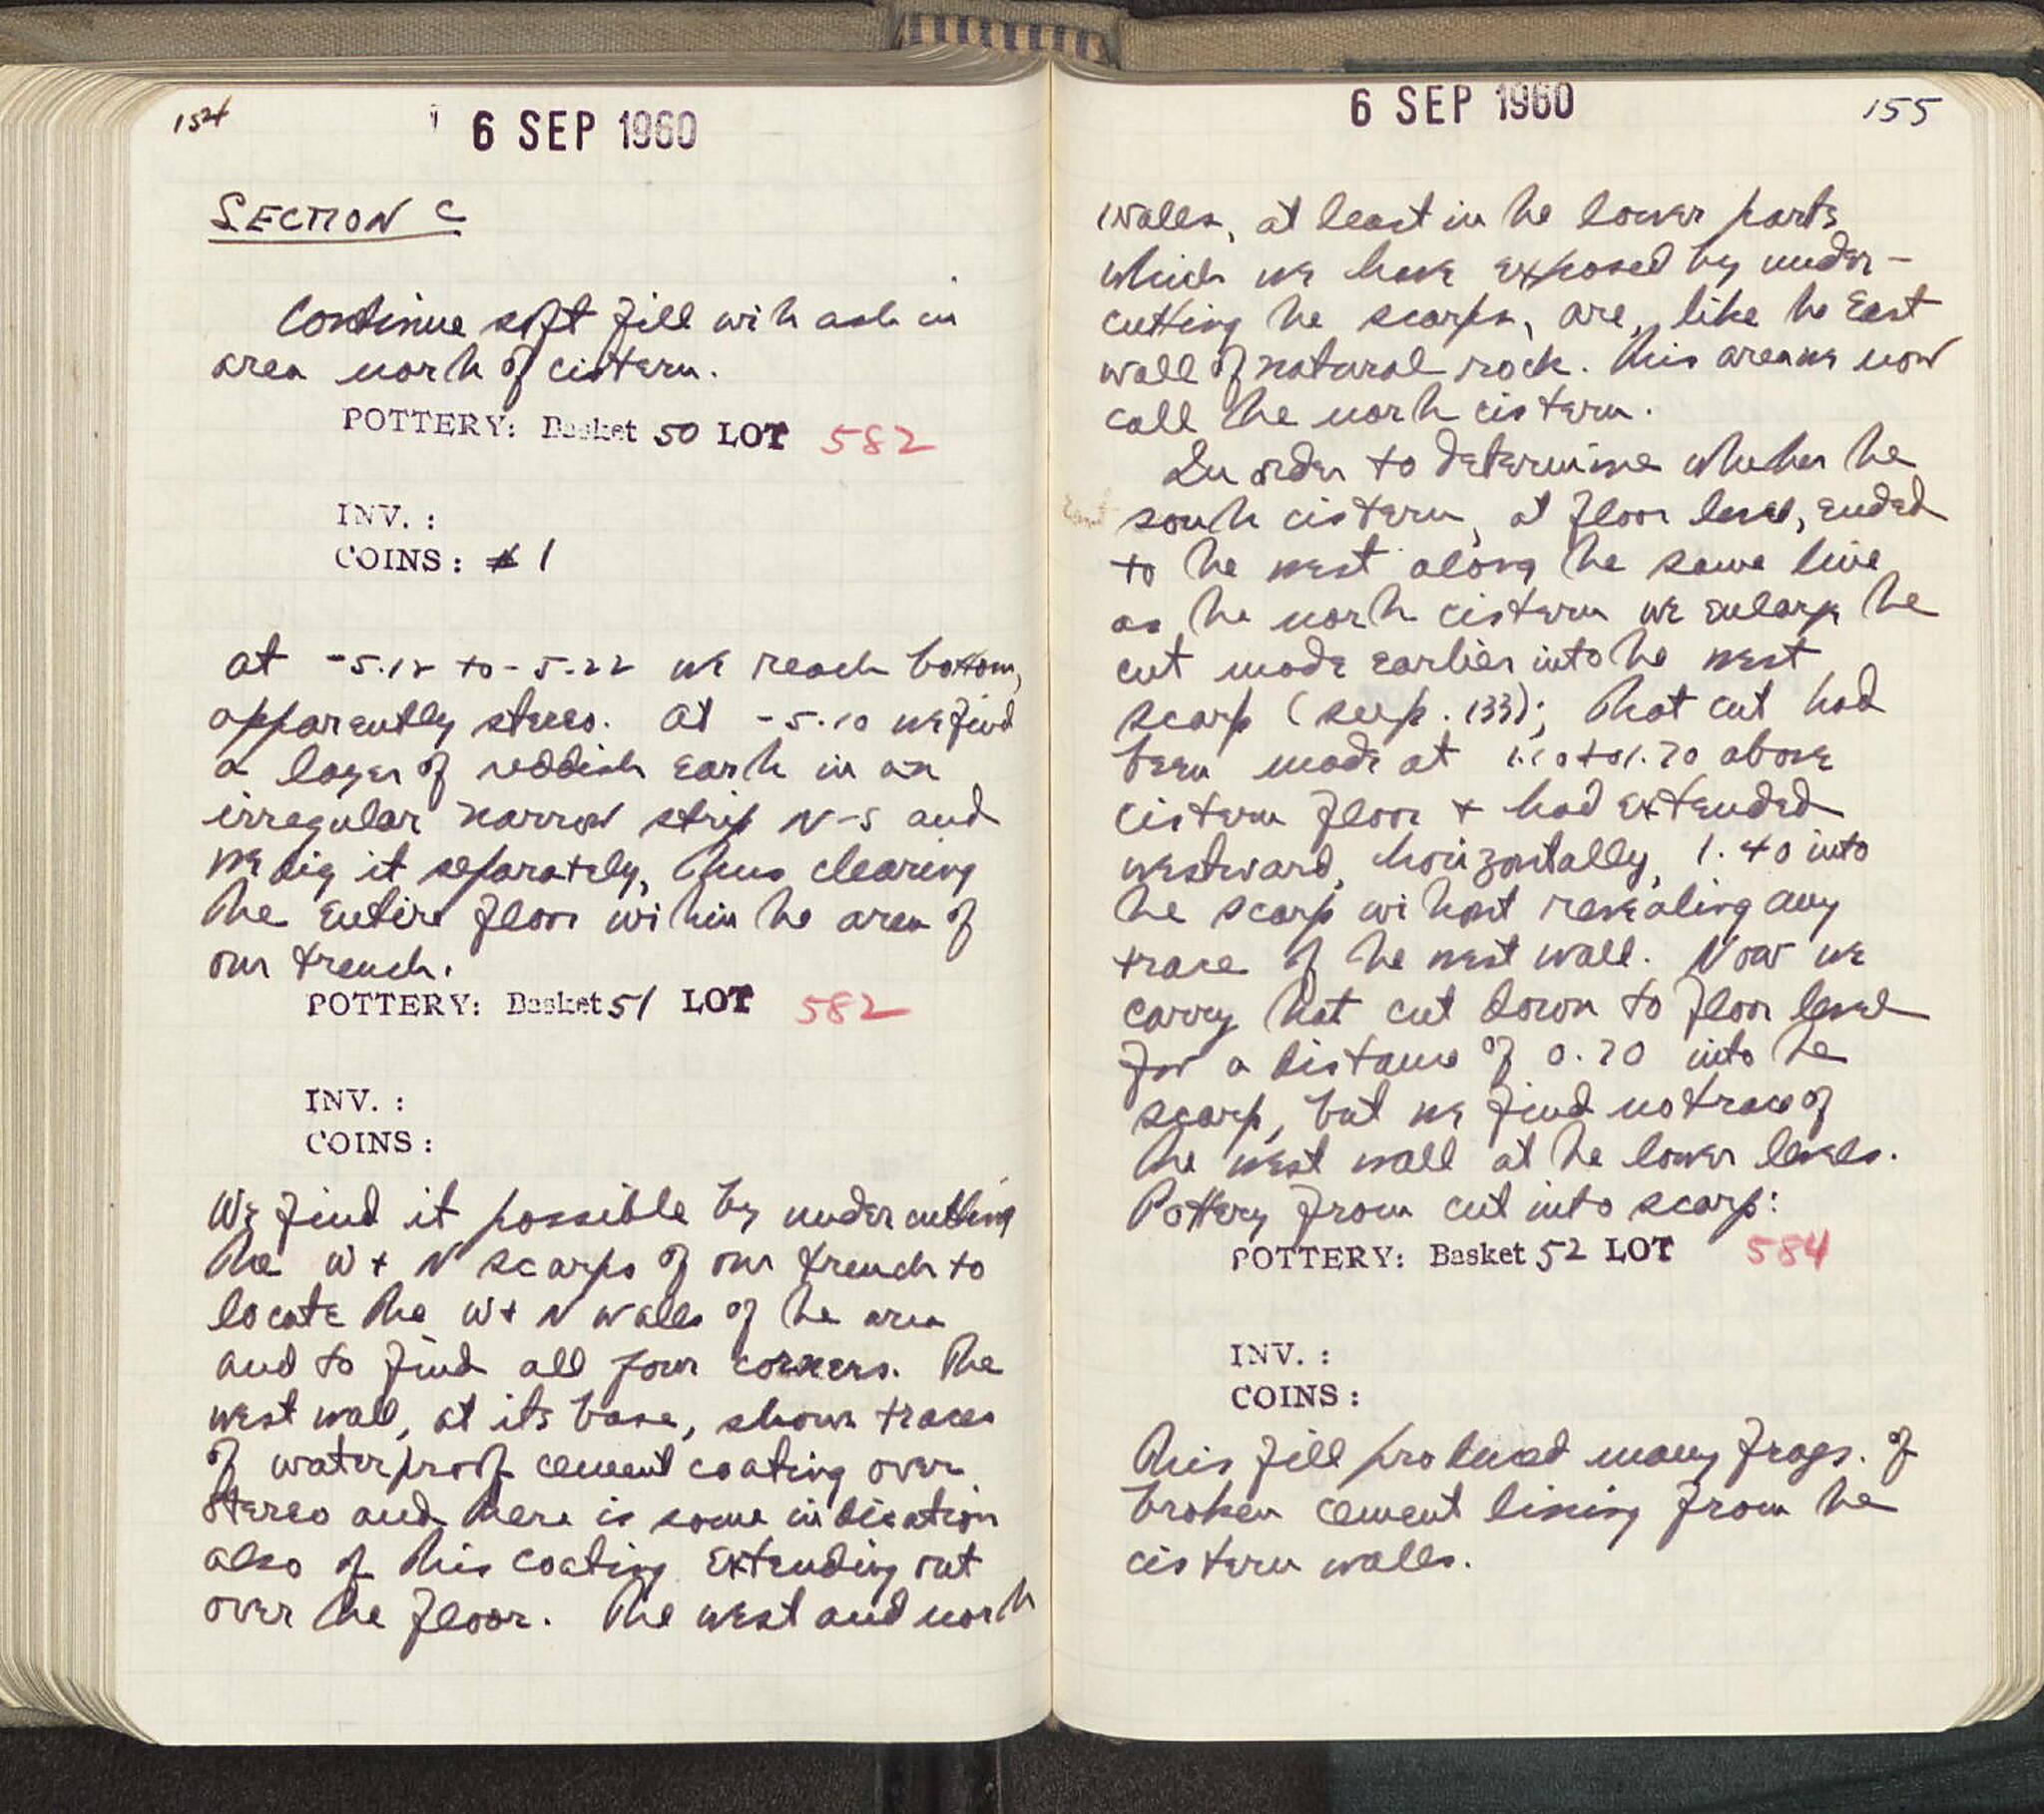 154
6 SEP 1960
SECTION C
Continue soft fill with ash in
area north of cistern.
POTTERY: Basket 50 LOT 582
INV. :
COINS: 1
At -5.12 to -5.22 we reach bottom,
apparently stereo. At -5.10 we find
a layer of reddish earth in an
irregular narrow strip N-S and
we dig it separately, thus clearing
the entire floor within the area of
our trench.
POTTERY: Basket 51 LOT 582
INV. :
COINS:
We find it possible by undercutting
the W + N scarps of our trench to
locate the W + N walls of the area
and to find all four corners. The
west wall, at its base, shows traces
of waterproof cement coating over
stereo and there is some indication
also of this coating extending out
over the floor. The west and north
6 SEP 1960
155
walls, at least in the lower parts
which we have exposed by under-
cutting the scarps, are, like the East
wall of natural rock. This area we now
call the north cistern.
In order to determine whether the
south cistern, at floor level, ended
to the west along the same line
as the north cistern we enlarge the
cut made earlier into the west
scarp (see p. 133); that cut had
been made at to 1.70 above
cistern floor + had extended
westward, horizontally, 1.40 into
the scarp without revealing any
trace of the west wall. Now we
carry that cut down to floor level
for a distance of 0.70 into the
scarp, but we find no trace of
the west wall at the lower levels.
Pottery from cut into scarp:
POTTERY: Basket 52 LOT 584
INV. :
COINS:
This fill produced many frags. of
broken cement lining from the
cistern walls.